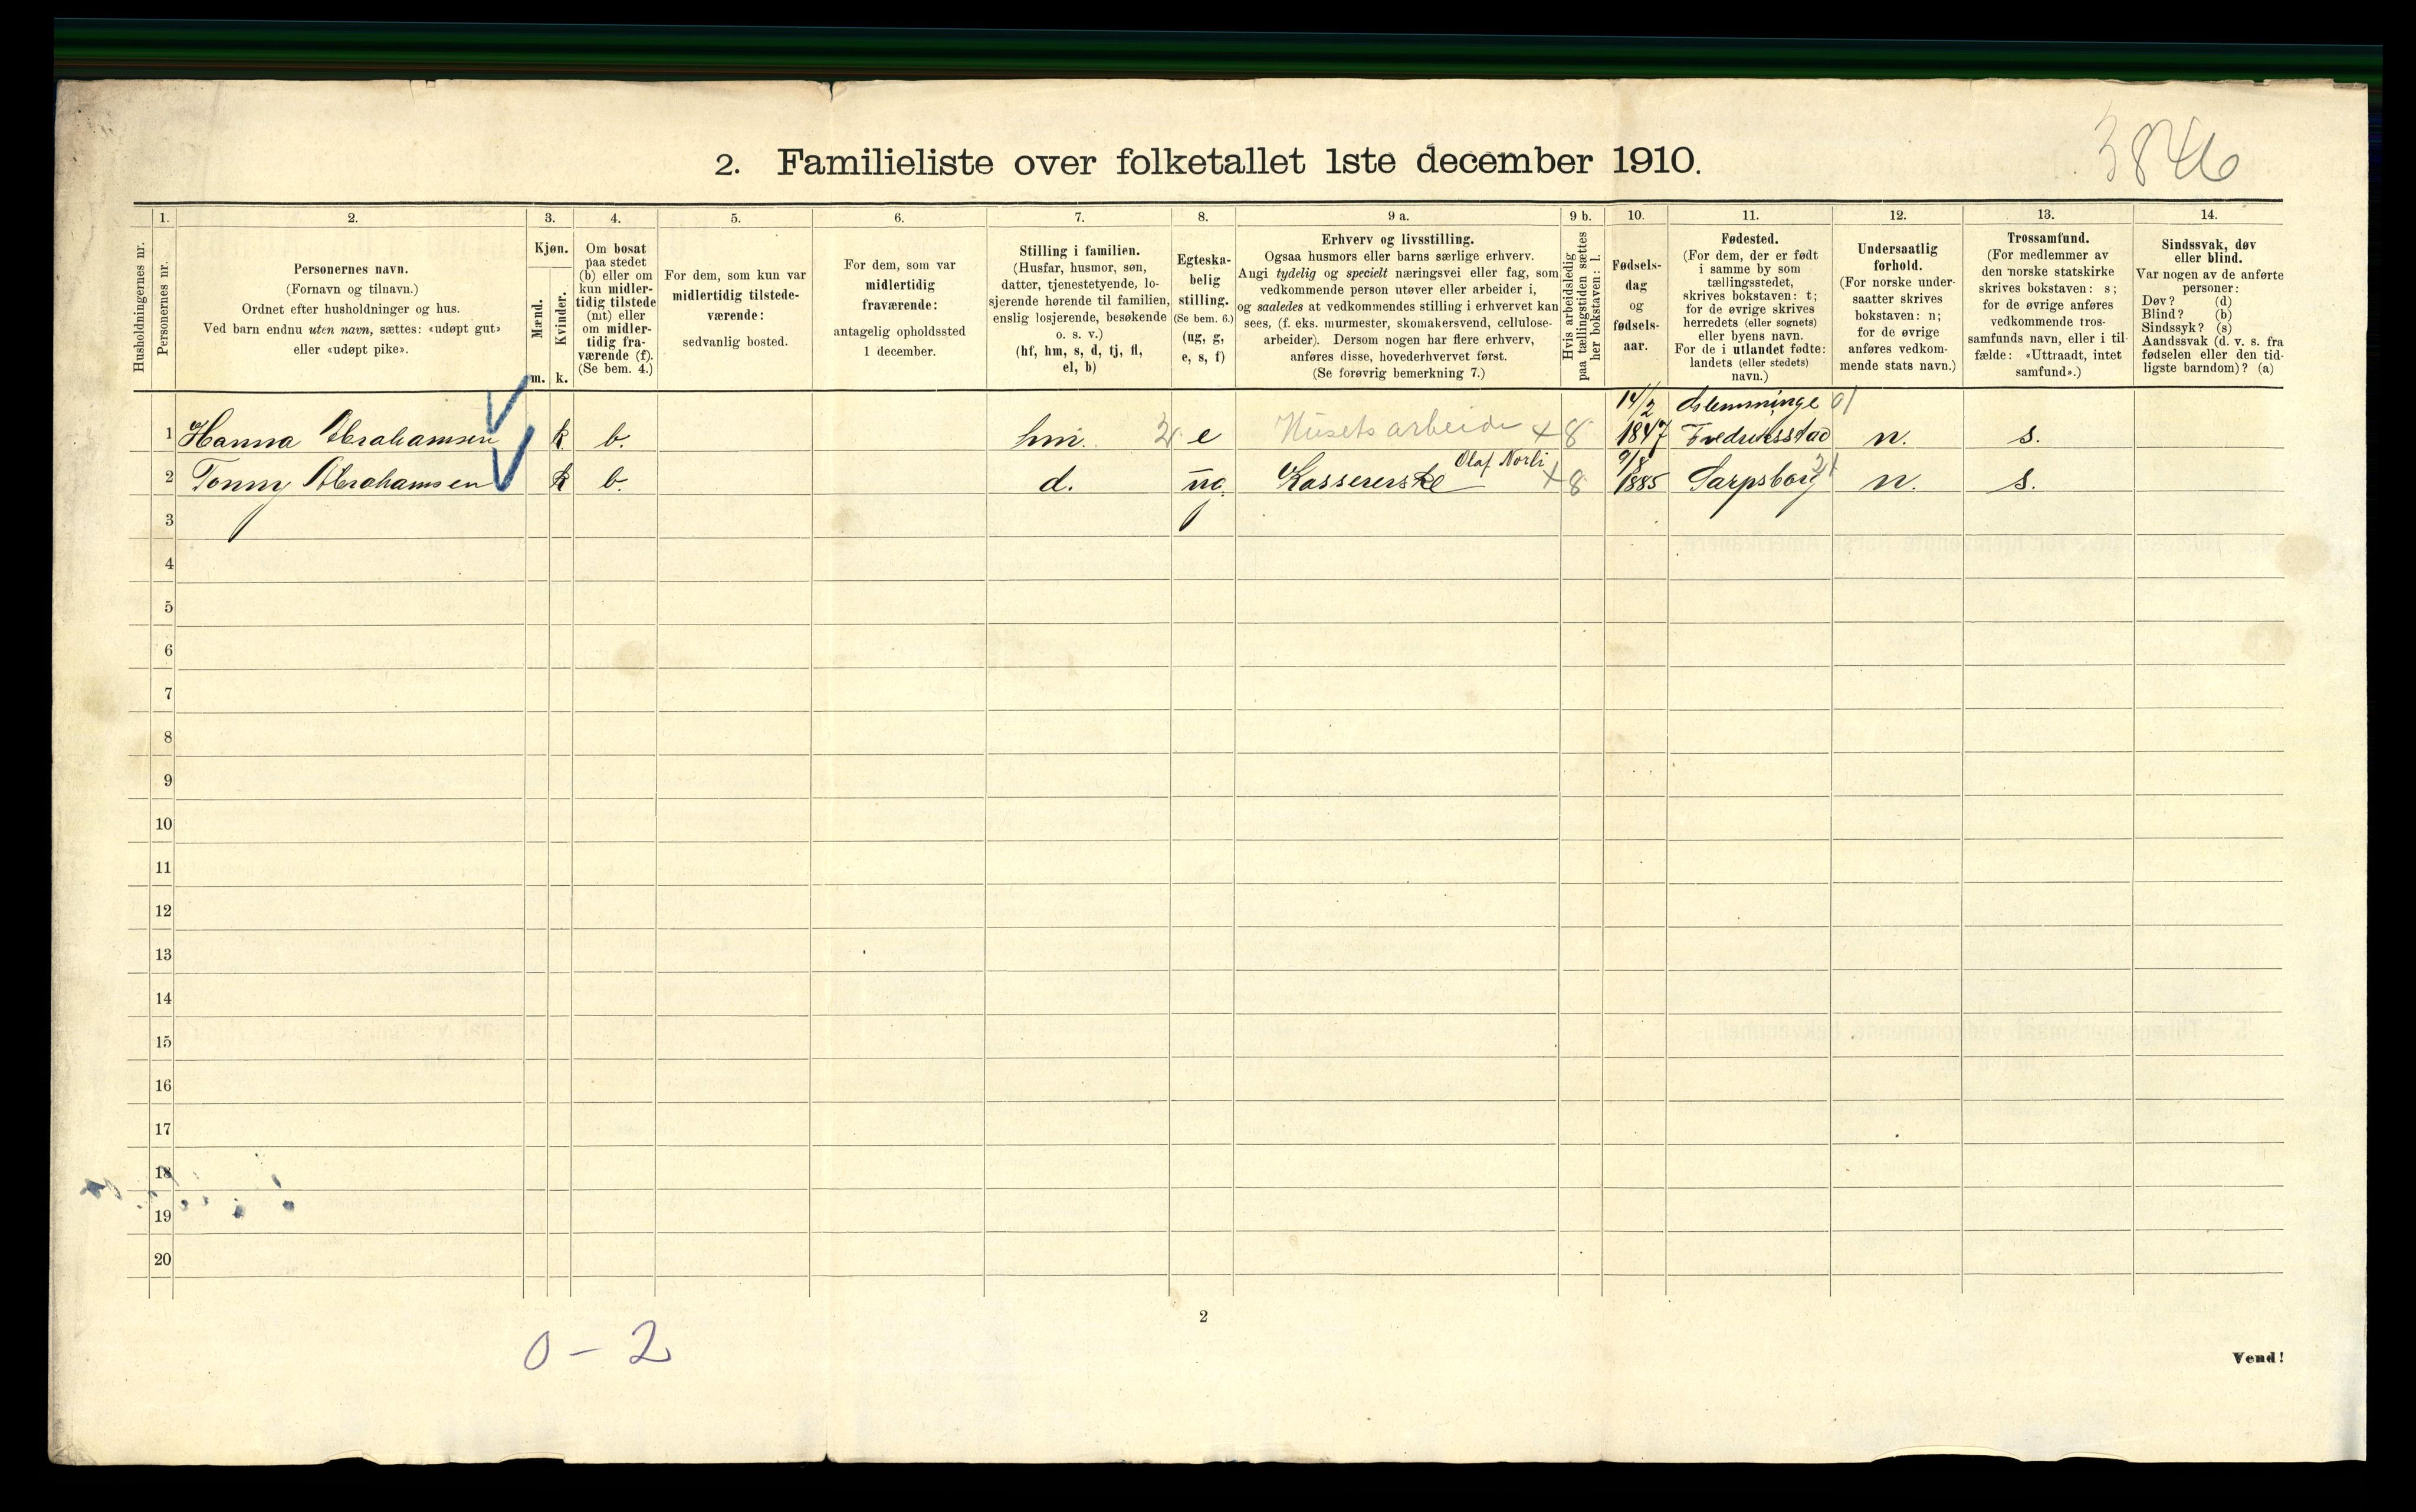 3846
2. Familieliste over folketallet 1ste december 1910.
1. 2. 3. 4. 5. 6. 7. 8. 9 a. 9 b. 10. 11. 12. 13. 14.
Husholdningernes nr.
Personernes nr.
Personernes navn.
(Fornavn og tilnavn.)
Ordnet efter husholdninger og hus.
Ved barn endnu uten navn, sættes: «udøpt gut»
eller «udøpt pike».
Kjøn.
Mænd.
Kvinder.
m. k.
Om bosat
paa stedet
(b) eller om
kun midler-
tidig tilstede
(mt) eller
om midler-
tidig fra-
værende (f).
(Se bem. 4.)
For dem, som kun var
midlertidig tilstede-
værende:
sedvanlig bosted.
For dem, som var
midlertidig
fraværende:
antagelig opholdssted
1 december.
Stilling i familien.
(Husfar, husmor, søn,
datter, tjenestetyende, lo-
sjerende hørende til familien,
enslig losjerende, besøkende
o. s. v.)
(hf, hm, s, d, tj, fl,
el, b)
Egteska-
belig
stilling.
(Se bem. 6.)
(ug, g,
e, s, f)
Erhverv og livsstilling.
Ogsaa husmors eller barns særlige erhverv.
Angi tydelig og specielt næringsvei eller fag, som
vedkommende person utøver eller arbeider i,
og saaledes at vedkommendes stilling i erhvervet kan
sees, (f. eks. murmester, skomakersvend, cellulose-
arbeider). Dersom nogen har flere erhverv,
anføres disse, hovederhvervet først.
(Se forøvrig bemerkning 7.)
Hvis arbeidsledig
paa tællingstiden sættes
her bokstaven: l.
Fødsels-
dag
og
fødsels-
aar.
Fødested.
(For dem, der er født
i samme by som
tællingsstedet,
skrives bokstaven: t;
for de øvrige skrives
herredets (eller sognets)
eller byens navn.
For de i utlandet fødte:
landets (eller stedets)
navn.)
Undersaatlig
forhold.
(For norske under-
saatter skrives
bokstaven: n;
for de øvrige
anføres vedkom-
mende stats navn.)
Trossamfund.
(For medlemmer av
den norske statskirke
skrives bokstaven: s;
for de øvrige anføres
vedkommende tros-
samfunds navn, eller i til-
fælde: «Uttraadt, intet
samfund».)
Sindssvak, døv
eller blind.
Var nogen av de anførte
personer:
Døv? (d)
Blind? (b)
Sindssyk? (s)
Aandssvak (d. v. s. fra
fødselen eller den tid-
ligste barndom)? (a)
14/2 Glemminge 01
1 Hanna Abrahamsen k b. hm. 2 e Husets arbeide + 8 1847 Fredriksstad n. s.
Olaf Norli 9/8 21
2 Tonny Abrahamsen k b. d. ug. Kassererske + 8 1885 Sarpsborg n. s.
3
4
5
6
7
8
9
10
11
12
13
14
15
16
17
18
19
20
2
0 - 2
Vend!